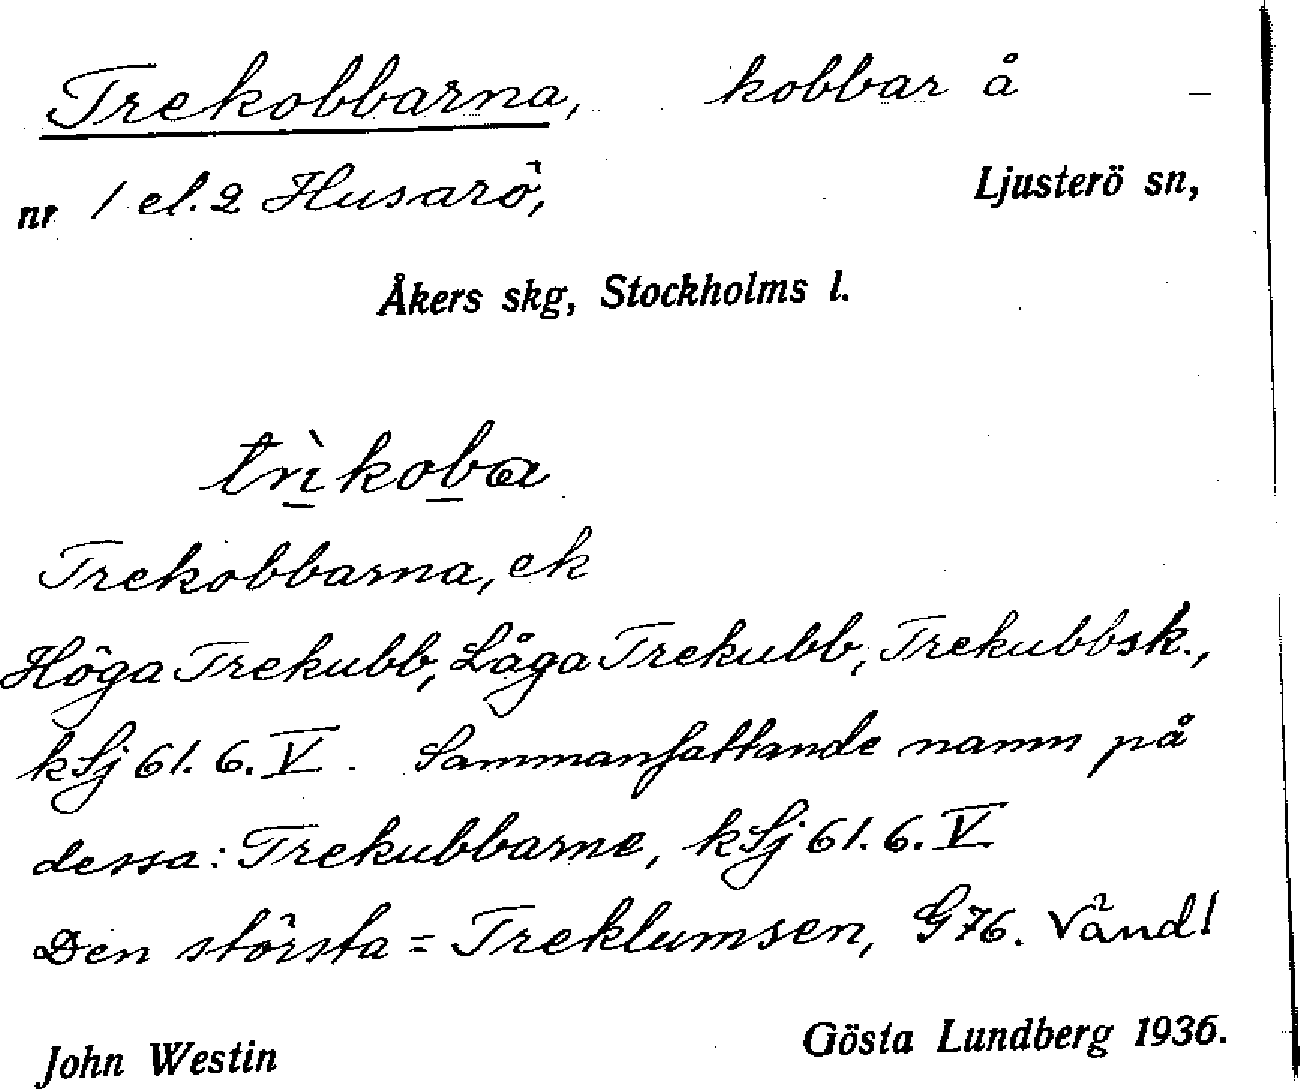 Trekobbarna, kobbar å –
nr 1 el. 2 Husarö, Ljusterö sn,
Åkers skg, Stockholms l.
trìkoba
Trekobbarna, ek
Höga Trekubb, Låga Trekubb, Trekubbsk.,
kSj 61. 6. V. Sammanfattande namn på
dessa: Trekubbarne, kSj 61. 6. V
Den största = Treklumsen, G 76. Vänd!
John Westin Gösta Lundberg 1936.